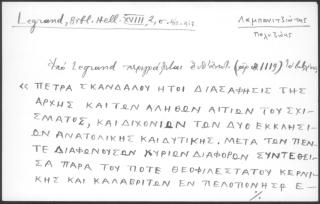 Legrand, Bibl. Hell. XVIII, 2, σ.
Λαμπανιτζιώτης
Πολυζώης
Ὑπὸ Legrand περιγράφεται (ἀρ. 1119)
« ΠΕΤΡΑ ΣΚΑΝΔΑΛΟΥ ΗΤΟΙ ΔΙΑΣΑΦΗΣΙΣ ΤΗΣ
ΑΡΧΗΣ ΚΑΙ ΤΩΝ ΑΛΗΘΩΝ ΑΙΤΙΩΝ ΤΟΥ ΣΧΙ-
ΣΜΑΤΟΣ, ΚΑΙ ΔΙΧΟΝΙΩΝ ΤΩΝ ΔΥΟ ΕΚΚΛΗΣΙ-
ΩΝ ΑΝΑΤΟΛΙΚΗΣ ΚΑΙ ΔΥΤΙΚΗΣ. ΜΕΤΑ ΤΩΝ ΠΕΝ-
ΤΕ ΔΙΑΦΩΝΟΥΣΩΝ ΚΥΡΙΩΝ ΔΙΑΦΟΡΩΝ ΣΥΝΤΕΘΕΙ-
ΣΑ ΠΑΡΑ ΤΟΥ ΠΟΤΕ ΘΕΟΦΙΛΕΣΤΑΤΟΥ ΚΕΡΝΙ-
ΚΗΣ ΚΑΙ ΚΑΛΑΒΡΙΤΩΝ ΕΝ ΠΕΛΟΠΟΝΗΣΩ Ε-